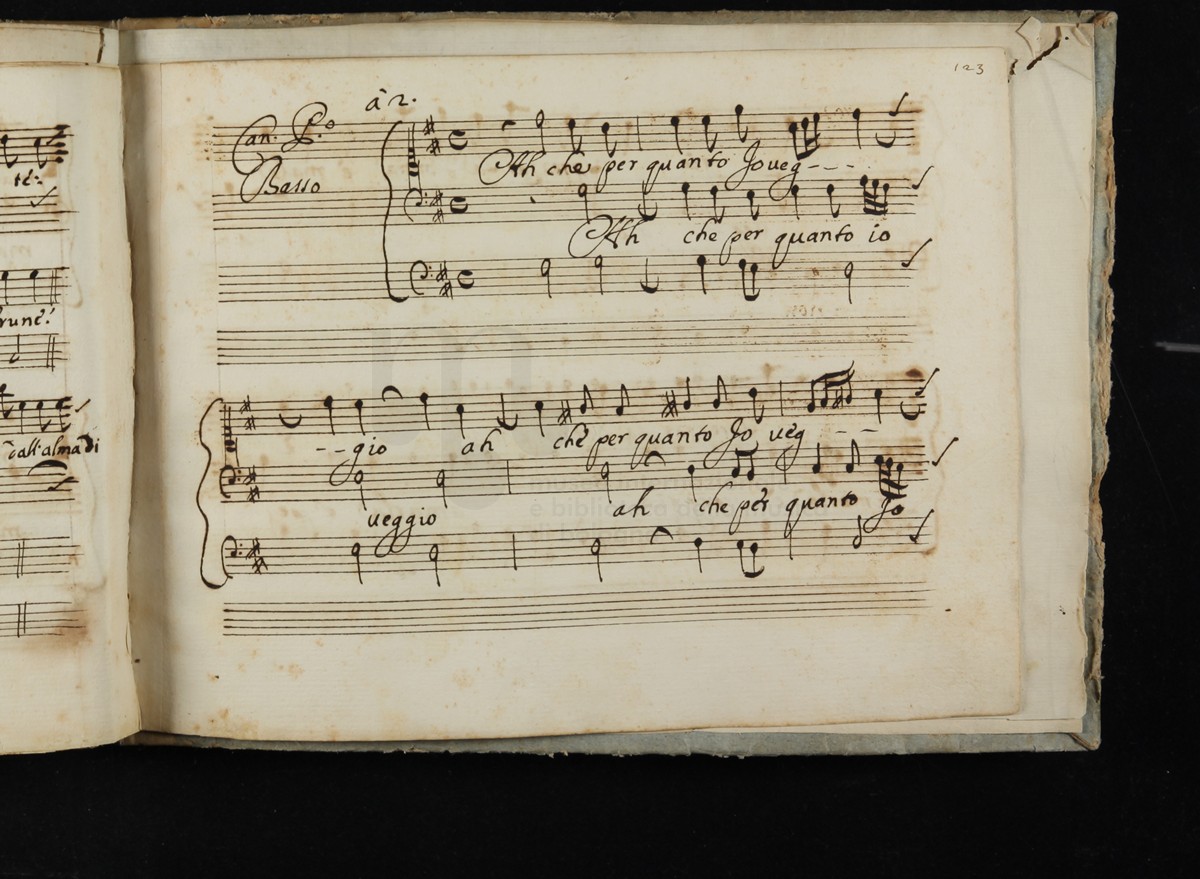 123
à 2.
Can. P.º
Basso
Ah che per quanto Jo ueg- - -
Ah che per quanto io
- - gio ah che per quanto Jo ueg - -
ueggio ah che per quanto Jo
te:
rune!
call'alma di